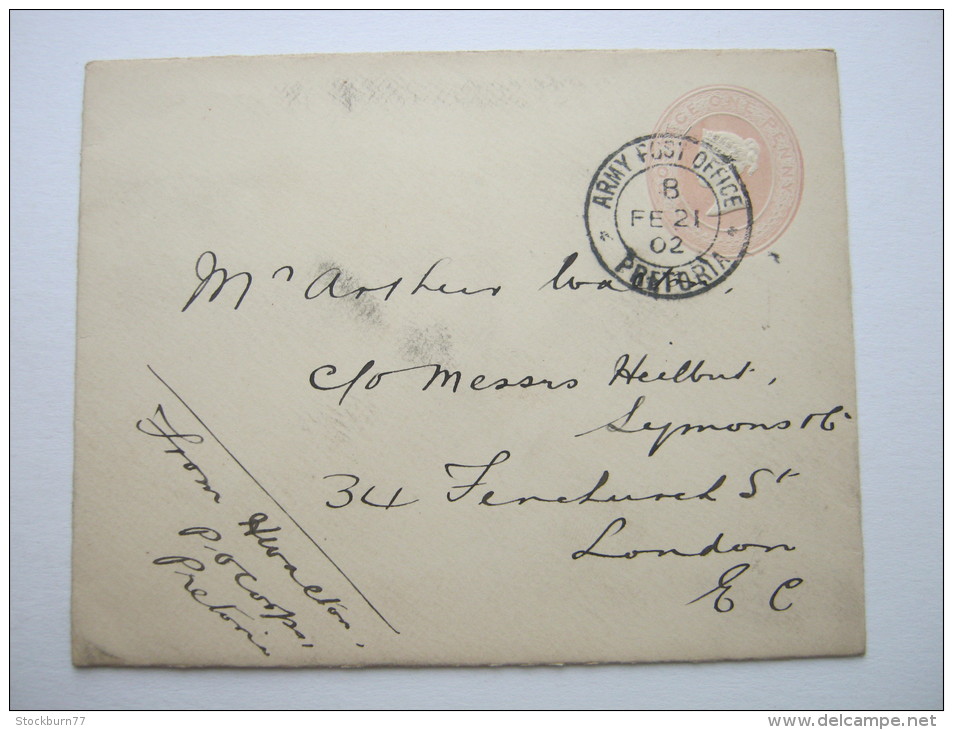 ONE PENNY
ARMY POST OFFICE
B
FE 21
02
PRETORIA
Mr Arthur
c/o Messrs Heilbut,
Symons & Co
34 Fenchurch St
London
E C
From HWalton,
P.O Corps,
Pretoria
Stockburn77
www.delcampe.net